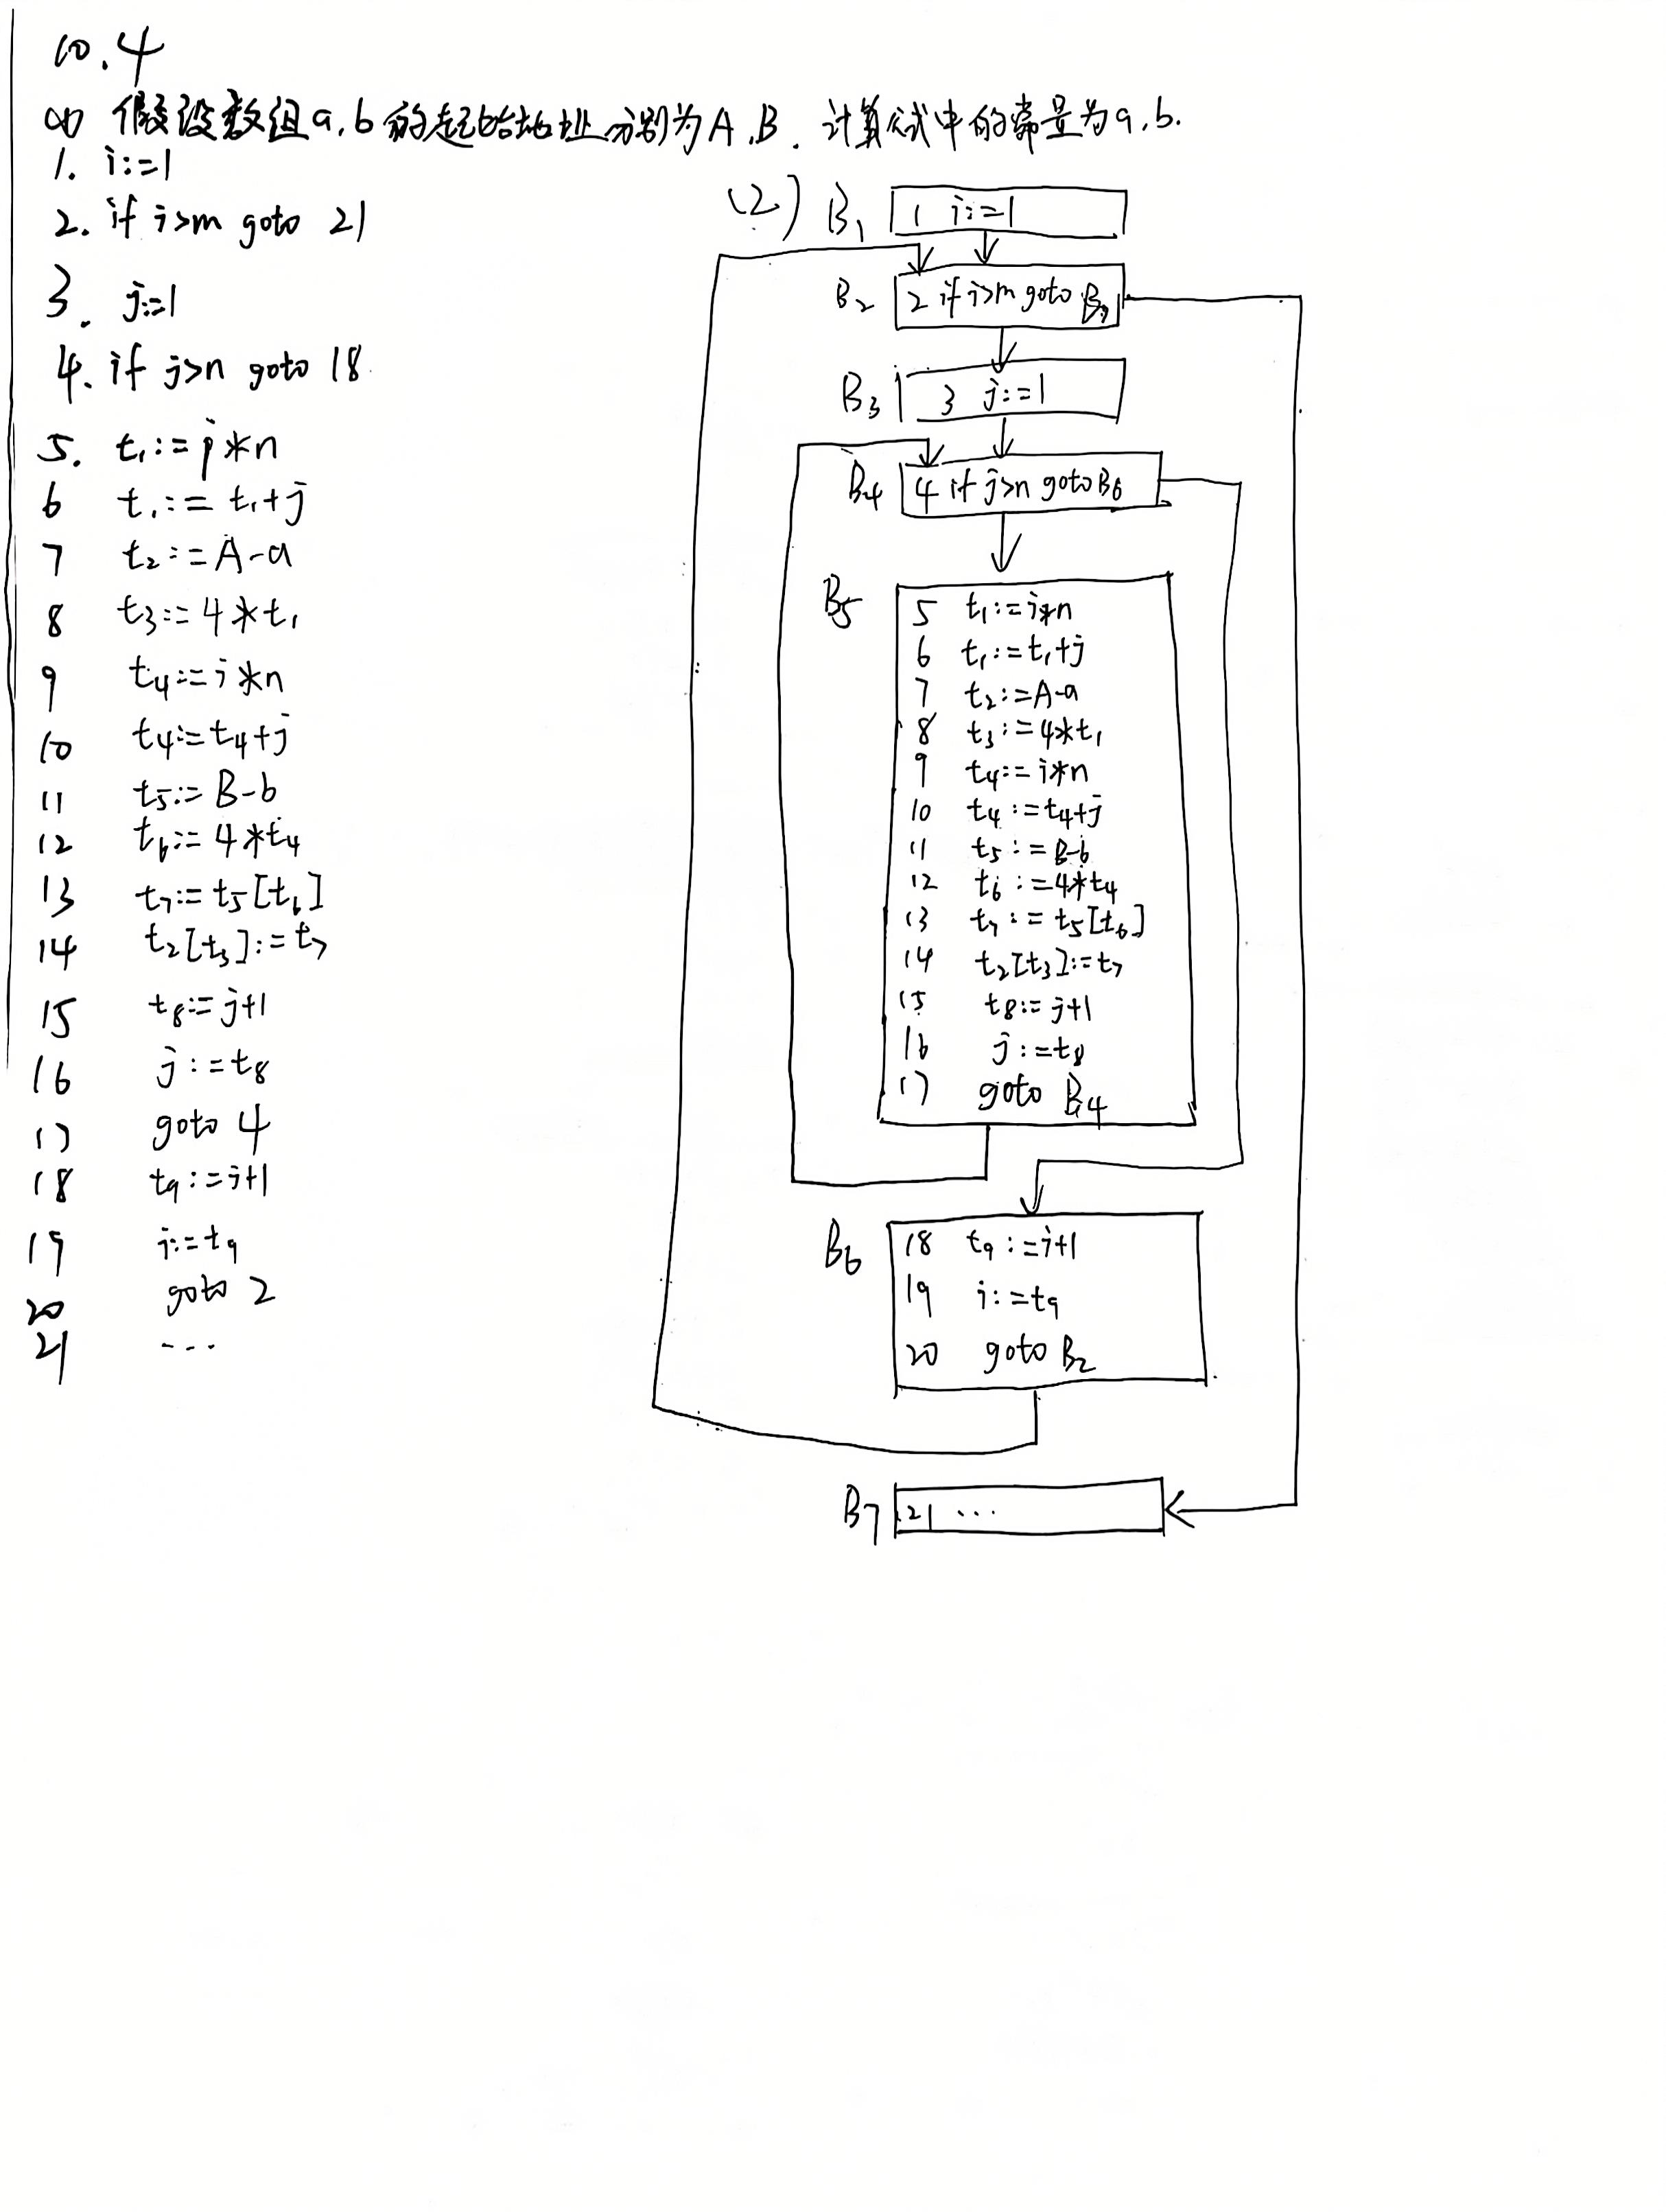 10.4
(1) 假设数组a,b的起始地址分别为A,B. 计算公式中的常量为a,b.
1. i:=1
2. if i>m goto 21
3. j:=1
4. if j>n goto 18
5. t₁:=i*n
6 t₁:=t₁+j
7 t₂:=A-a
8 t₃:=4*t₁
9 t₄:=i*n
10 t₄:=t₄+j
11 t₅:=B-b
12 t₆:=4*t₄
13 t₇:=t₅[t₆]
14 t₂[t₃]:=t₇
15 t₈:=j+1
16 j:=t₈
17 goto 4
18 t₉:=i+1
19 i:=t₉
20 goto 2
21 ...
(2) B₁ 1 i:=1
B₂ 2 if i>m goto B₇
B₃ 3 j:=1
B₄ 4 if j>n goto B₆
B₅ 5 t₁:=i*n
6 t₁:=t₁+j
7 t₂:=A-a
8 t₃:=4*t₁
9 t₄:=i*n
10 t₄:=t₄+j
11 t₅:=B-b
12 t₆:=4*t₄
13 t₇:=t₅[t₆]
14 t₂[t₃]:=t₇
15 t₈:=j+1
16 j:=t₈
17 goto B₄
B₆ 18 t₉:=i+1
19 i:=t₉
20 goto B₂
B₇ 21 ...